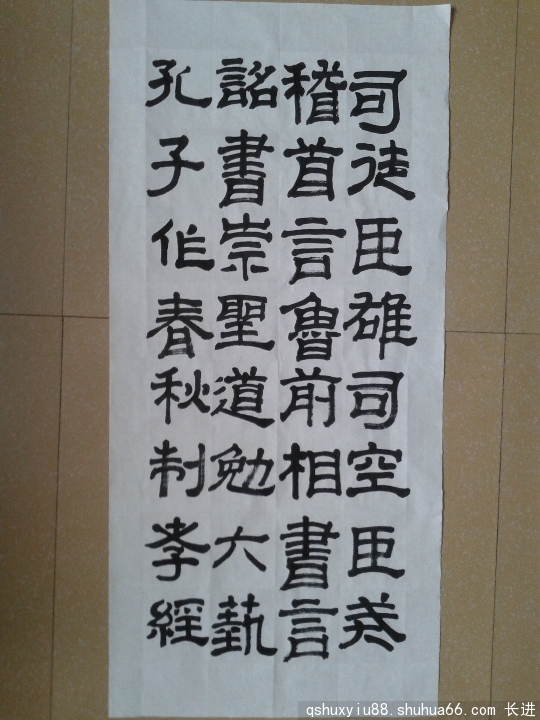 司徒臣雄司空臣戒
稽首言魯前相書言
詔書崇聖道勉六藝
孔子作春秋制孝經
qshuxyiu88.shuhua66.com 长进